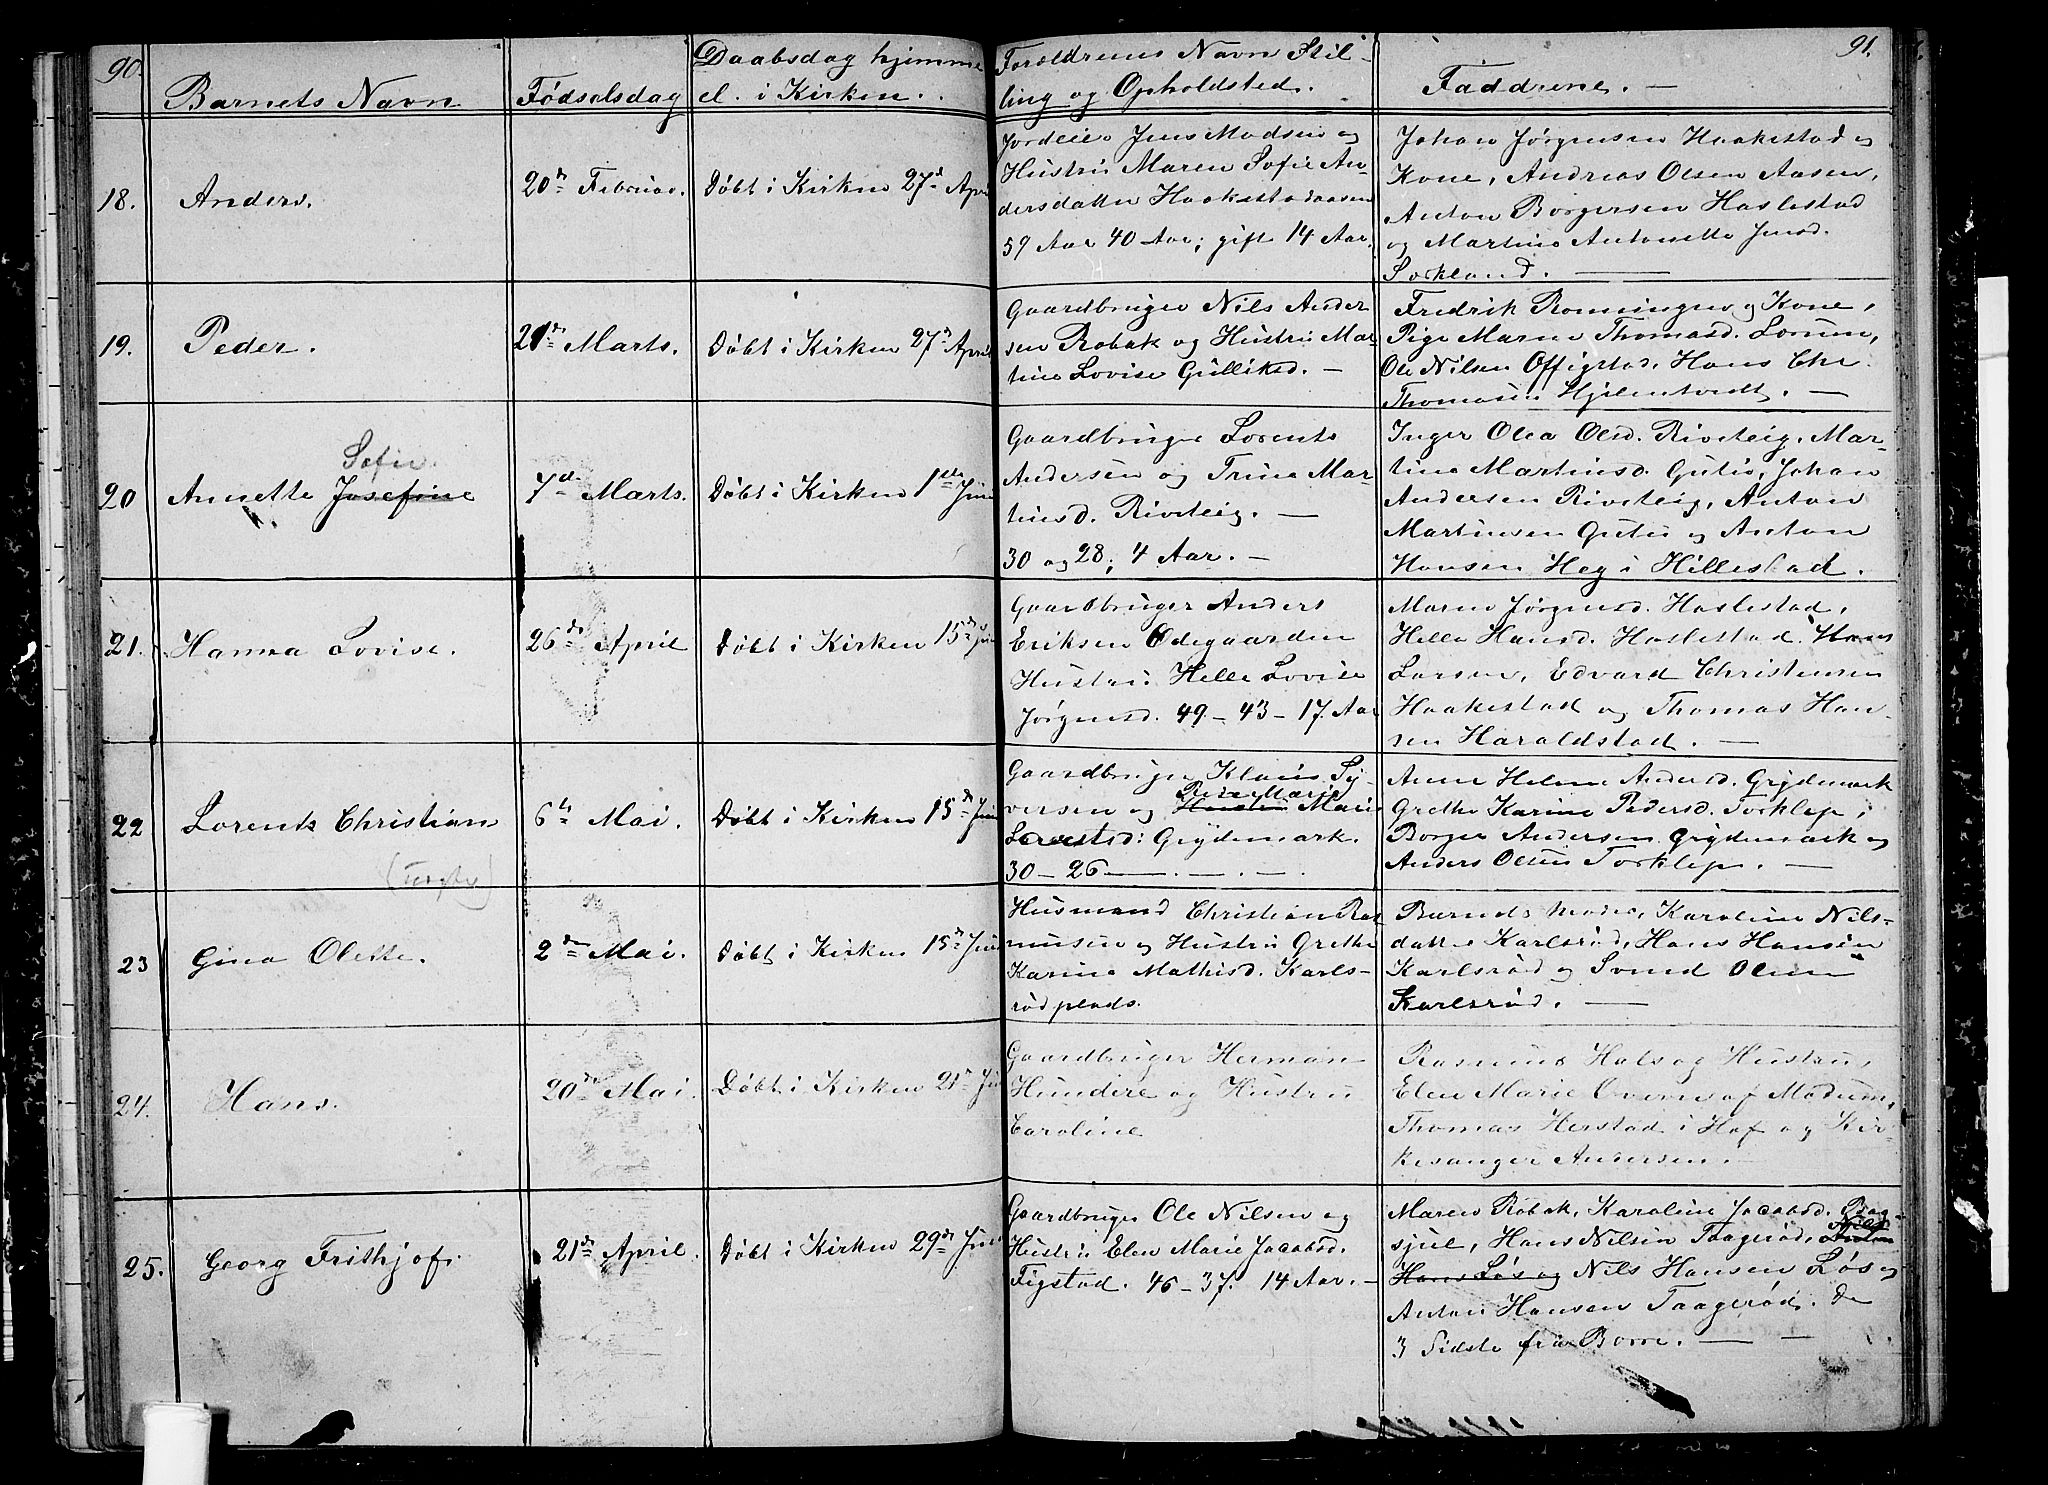 90.
Barnets Navn
Fødselsdag
Daabsdag hjemme
el. i Kirken.
Forældrenes Navn Stil-
ling og Opholdsted.
Faddrene. —
91.
18.
Anders.
20de Februar.
Døbt i Kirken 27d April
Jordeier Jens Madsen og
Hustru Maren Sofie An-
dersdatter Haakestadaasen
59 Aar 40 Aar; gift 14 Aar.
Johan Jørgensen Haakestad og
Kone, Andreas Olsen Aasen,
Anton Borgersen Haslestad
og Martine Antonette Jensd.
Sørkland. —
19.
Peder.
21de Marts.
Døbt i Kirken 27d April
Gaardbruger Nils Ander
sen Robak og Hustru Mar
tine Lovise Gulliksd. —
Fredrik Ronningen og Kone,
Pige Maren Thomasd. Sorum,
Ole Nilsen Offigstad, Hans Chr.
Thomasen Hjelmtvedt. —
20
Sofie.
Annette Josefine
7d Marts.
Døbt i Kirken 1ste Juni
Gaardbruger Lorents
Andersen og Trine Mar-
tinsd. Riveteig. —
30 og 28; 4 Aar. —
Inger Olea Olsd. Riveteig, Mar-
tine Martinsd. Gutu, Johan
Andersen Riveteig, Anton
Martinsen Gutu og Anton
Hansen Heg i Hillestad.
21.
Hanna Lovise.
26de April
Døbt i Kirken 15d Juni
Gaardbruger Anders
Eriksen Ødegaarden
Hustru Helle Lovise
Jørgensd. 49 – 43 – 17 Aar
Maren Jørgensd. Haslestad,
Helle Hansd. Haslestad. Hans
Larsen, Edvard Christensen
Haakestad og Thomas Han-
sen Haraldstad. —
22
Lorents Christian
6te Mai.
Døbt i Kirken 15d Juni
Gaardbruger Klaus Sy-
versen og Hustru Marie
Grydemark.
30 – 26 —
Anne Helene Andersd. Grydemark
Grethe Karine Pedersd. Torklep,
Borger Andersen Grydemark og
Anders Olsen Torklep. —
23
Gina Olette.
2den Mai.
Døbt i Kirken 15d Juni
Husmand Christian Ras
musen og Hustru Grethe
Karine Mathisd. Karls-
rød plads.
Barnets Moder, Karoline Nils-
datter Karlsrød, Hans Hansen
Karlsrød og Svend Olsen
Karlsrød. —
24.
Hans.
20de Mai.
Døbt i Kirken 21d Juni
Gaardbruger Herman
Hundere og Hustru
Caroline
Rasmus Hals og Hustru,
Elen Marie Overn af Modum,
Thomas Herstad i Hof og Kir-
kesanger Andersen.
25.
Georg Frithjof.
21de April.
Døbt i Kirken 29de Juni
Gaardbruger Ole Nilsen og
Hustru Elen Marie Jacobsd.
Figstad. 46 – 37. 14 Aar. –
Maren Robak, Karoline Jacobsd. Brag-
sjul, Hans Nilsen Taagerød,
Hans Løs og Nils Hansen Løs og
Anton Hansen Taagerød. De
3 Sidste fra Borre. — –